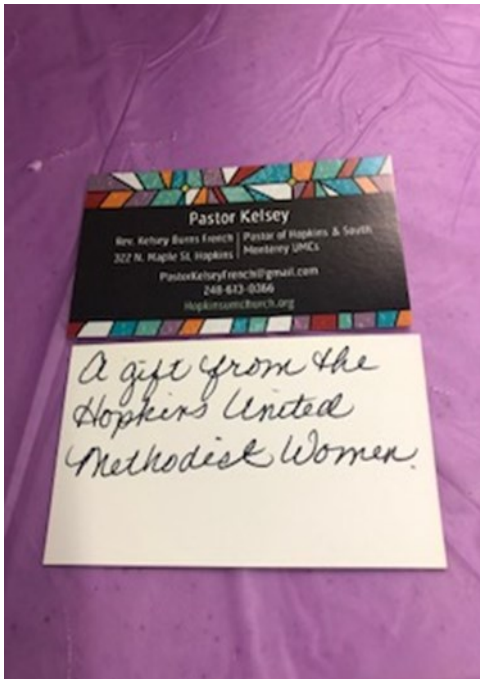 Pastor Kelsey
Rev. Kelsey Burns French | Pastor of Hopkins & South
322 N. Maple St, Hopkins | Monterey UMCs
PastorKelseyFrench@gmail.com
248-613-0366
Hopkinsumchurch.org
A gift from the
Hopkins United
Methodist Women.